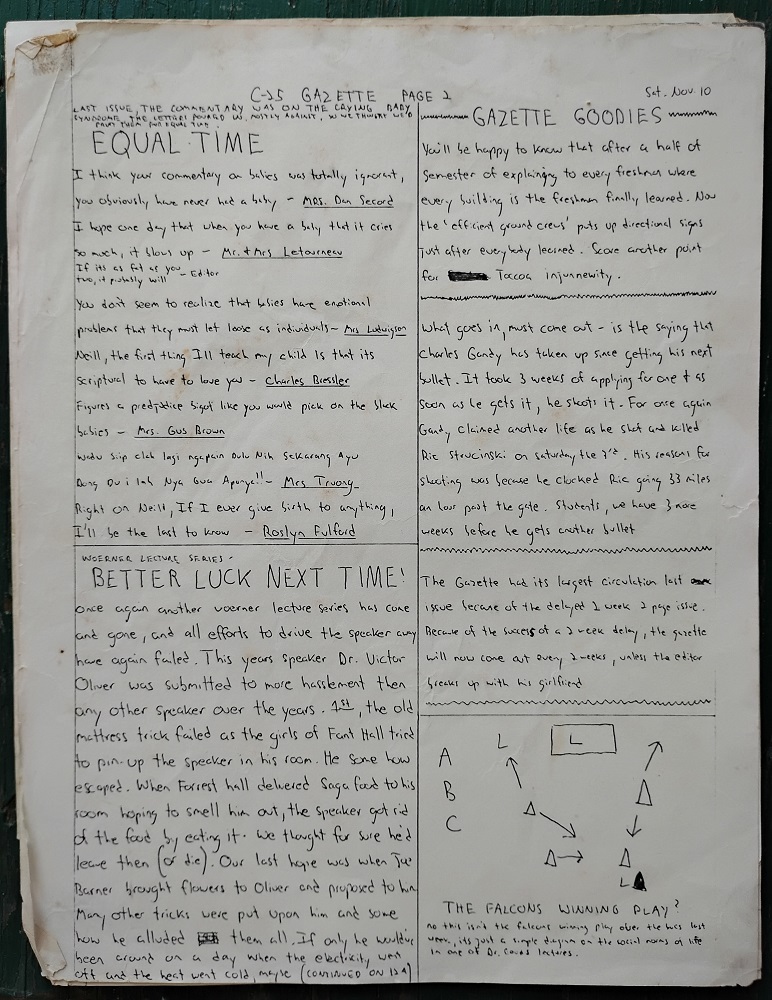 C-25 GAZETTE PAGE 2
Sat. Nov 10
LAST ISSUE, THE COMMENTARY WAS ON THE CRYING BABY
SYNDROME. THE LETTERS POURED IN, MOSTLY AGAINST, SO WE THOUGHT WE'D
PRINT THEM FOR EQUAL TIME.
EQUAL TIME
I think your commentary on babies was totally ignorant,
you obviously have never had a baby - Mrs. Dan Secord
I hope one day that when you have a baby that it cries
so much, it blows up - Mr. + Mrs Letourneau
If its as fat as you
two, it probably will - Editor
You don't seem to realize that babies have emotional
problems that they must let loose as individuals - Mrs Ludwigson
Neill, the first thing I'll teach my child Is that its
scriptural to have to love you - Charles Bressler
Figures a predjudice bigot like you would pick on the black
babies - Mrs. Gus Brown
Wadu Siip clah lagi ngapain Dulu Nih Sekarang Ayu
Dong Du i lah Nya Gua Aponye!! - Mrs Truong
Right on Neill, If I ever give birth to anything,
I'll be the last to know - Roslyn Fulford
WOERNER LECTURE SERIES -
BETTER LUCK NEXT TIME!
once again another woerner lecture series has come
and gone, and all efforts to drive the speaker away
have again failed. This years speaker Dr. Victor
Oliver was submitted to more hasslement then
any other speaker over the years. 1st, the old
mattress trick failed as the girls of Fant Hall tried
to pin-up the speaker in his room. He some how
escaped. When Forrest hall delivered Saga food to his
room hoping to smell him out, the speaker got rid
of the food by eating it. We thought for sure he'd
leave then (or die). Our last hope was when Joe
Barner brought flowers to Oliver and proposed to him
Many other tricks were put upon him and some
how he alluded them all. If only he would've
been around on a day when the electricity went
off and the heat went cold, maybe (CONTINUED ON 13A)
GAZETTE GOODIES
You'll be happy to know that after a half of
semester of explaining to every freshman where
every building is the freshmen finally learned. Now
the 'efficient ground crews' puts up directional signs
just after everybody learned. Score another point
for Toccoa Injunnewity.
What goes in, must come out - is the saying that
Charles Gandy has taken up since getting his next
bullet. It took 3 weeks of applying for one + as
soon as he gets it, he shoots it. For once again
Gandy claimed another life as he shot and killed
Ric Strucinski on saturday the 3rd. His reasons for
shooting was because he clocked Ric going 33 miles
an hour past the gate. Students, we have 3 more
weeks before he gets another bullet
The Gazette had its largest circulation last
issue because of the delayed 2 week 2 page issue.
Because of the success of a 2 week delay, the gazette
will now come out every 2 weeks, unless the editor
breaks up with his girlfriend
A
B
C
L
L
L
THE FALCONS WINNING PLAY?
no this isn't the falcons winning play over the last
week, its just a simple diagram on the social norms of life
in one of Dr. lectures.